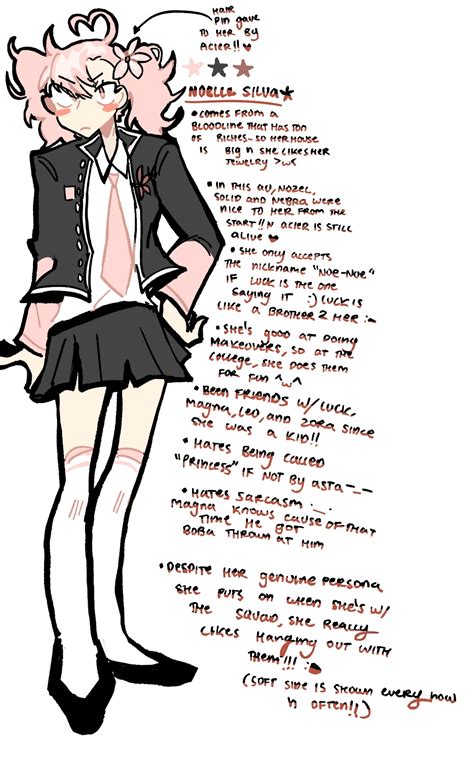 HAIR
PIN GAVE
TO HER BY
ACIER!! ♥
NOELLE SILVA★
•COMES FROM A
BLOODLINE THAT HAS TON
OF RICHES-SO HER HOUSE
IS BIG N SHE LIKES HER
JEWELRY >w<
•IN THIS AU, NOZEL,
SOLID AND NEBRA WERE
NICE TO HER FROM THE
START!! N ACIER IS STILL
ALIVE ♥
•SHE ONLY ACCEPTS
THE NICKNAME "NOE-NOE"
IF LUCK IS THE ONE
SAYING IT :) LUCK IS
LIKE A BROTHER 2 HER :-
•SHE'S GOOD AT DOING
MAKEOVERS, SO AT THE
COLLEGE, SHE DOES THEM
FOR FUN ^w^
•BEEN FRIENDS W/ LUCK,
MAGNA, LEO, AND ZORA SINCE
SHE WAS A KID!!
•HATES BEING CALLED
"PRINCESS" IF NOT BY ASTA -_-
•HATES SARCASM :_.
MAGNA KNOWS CAUSE OF THAT
TIME HE GOT
BOBA THROWN AT HIM
•DESPITE HER GENUINE PERSONA
SHE PUTS ON WHEN SHE'S W/
THE SQUAD, SHE REALLY
LIKES HANGING OUT WITH
THEM!!! :D
(SOFT SIDE IS SHOWN EVERY NOW
N OFTEN!!)